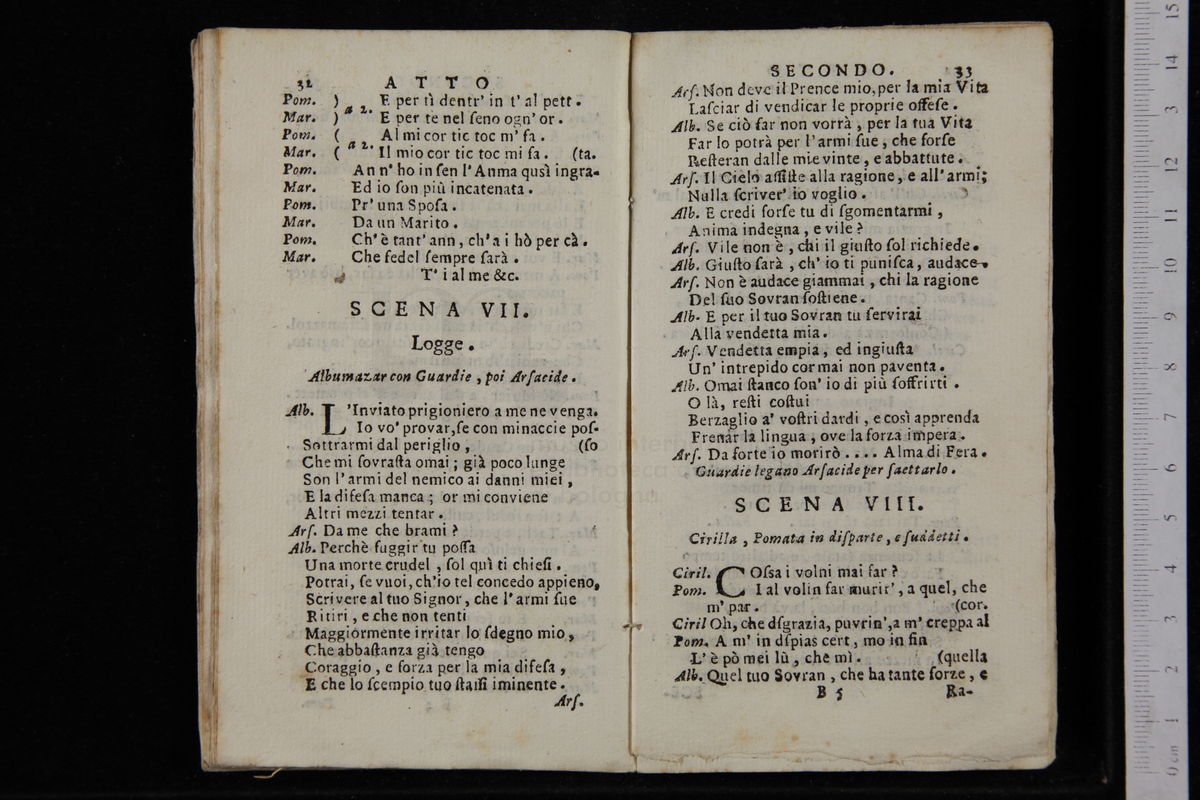 32 ATTO
Pom. ) E per tì dentr' in t' al pett.
Mar. ) a 2. E per te nel ſeno ogn' or.
Pom. ( Al mi cor tic toc m' fa.
Mar. ( a 2. Il mio cor tic toc mi fa. (ta.
Pom. An n' ho in ſen l'Anma qusì ingra-
Mar. Ed io ſon più incatenata.
Pom. Pr' una Spoſa.
Mar. Da un Marito.
Pom. Ch' è tant' ann, ch' a i hò per cà.
Mar. Che fedel ſempre ſarà.
T' i al me &c.
SCENA VII.
Logge.
Albumazar con Guardie, poi Arſacide.
Alb. L'Inviato prigioniero a me ne venga.
Io vo' provar, ſe con minaccie poſ-
Sottrarmi dal periglio, (ſo
Che mi ſovraſta omai; già poco lunge
Son l'armi del nemico ai danni miei,
E la difeſa manca; or mi conviene
Altri mezzi tentar.
Arſ. Da me che brami?
Alb. Perchè fuggir tu poſſa
Una morte crudel, ſol quì ti chieſi.
Potrai, ſe vuoi, ch'io tel concedo appieno,
Scrivere al tuo Signor, che l'armi ſue
Ritiri, e che non tenti
Maggiormente irritar lo ſdegno mio,
Che abbaſtanza già tengo
Coraggio, e forza per la mia difeſa,
E che lo ſcempio tuo ſtaſſi iminente.
Arſ.
SECONDO. 33
Arſ. Non deve il Prence mio, per la mia Vita
Laſciar di vendicar le proprie offeſe.
Alb. Se ciò far non vorrà, per la tua Vita
Far lo potrà per l'armi ſue, che forſe
Reſteran dalle mie vinte, e abbattute.
Arſ. Il Cielo aſſiſte alla ragione, e all' armi;
Nulla ſcriver' io voglio.
Alb. E credi forſe tu di ſgomentarmi,
Anima indegna, e vile?
Arſ. Vile non è, chi il giuſto ſol richiede.
Alb. Giuſto ſarà, ch' io ti puniſca, audace.
Arſ. Non è audace giammai, chi la ragione
Del ſuo Sovran ſoſtiene.
Alb. E per il tuo Sovran tu ſervirai
Alla vendetta mia.
Arſ. Vendetta empia, ed ingiuſta
Un' intrepido cor mai non paventa.
Alb. Omai ſtanco ſon' io di più ſoffrirti.
O là, reſti coſtui
Berzaglio a' voſtri dardi, e così apprenda
Frenar la lingua, ove la forza impera.
Arſ. Da forte io morirò .... Alma di Fera.
Guardie legano Arſacide per ſaettarlo.
SCENA VIII.
Cirilla, Pomata in diſparte, e ſuddetti.
Ciril. COſsa i volni mai far?
Pom. I al volin far murir', a quel, che
m' par. (cor.
Ciril Oh, che dſgrazia, puvrin', a m' creppa al
Pom. A m' in dſpias cert, mo in fin
L' è pò mei lù, che mì. (quella
Alb. Quel tuo Sovran, che ha tante forze, e
B 5 Ra-